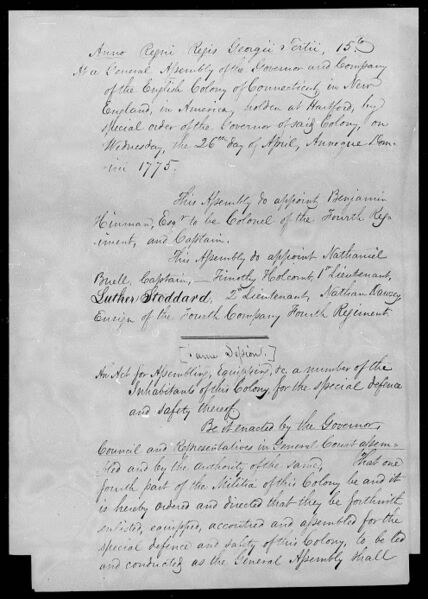 Anno Regni Regis Georgii Tertii, 15th
At a General Assembly of the Governor and Company
of the English Colony of Connecticut, in New
England, in America, holden at Hartford, by
special order of the Governor of said Colony, on
Wednesday, the 26th day of April, Annoque Dom-
ini 1775.
This Assembly do appoint Benjamin
Hinman, Esqr to be Colonel of the Fourth Reg-
iment, and Captain.
This Assembly do appoint Nathaniel
Buell, Captain, — Timothy Holcomb, 1st Lieutenant,
Luther Stoddard, 2d Lieutenant, Nathan
Ensign of the Fourth Company Fourth Regiment.
[Same Session.]
An Act for Assembling, Equipping, &c, a number of the
Inhabitants of this Colony, for the special defence
and safety thereof.
Be it enacted by the Governor,
Council and Representatives in General Court assem-
bled and by the authority of the same, That one
fourth part of the Militia of this Colony be and it
is hereby ordered and directed that they be forthwith
enlisted, equipped, accoutred and assembled for the
special defence and safety of this Colony, to be led
and conducted as the General Assembly shall